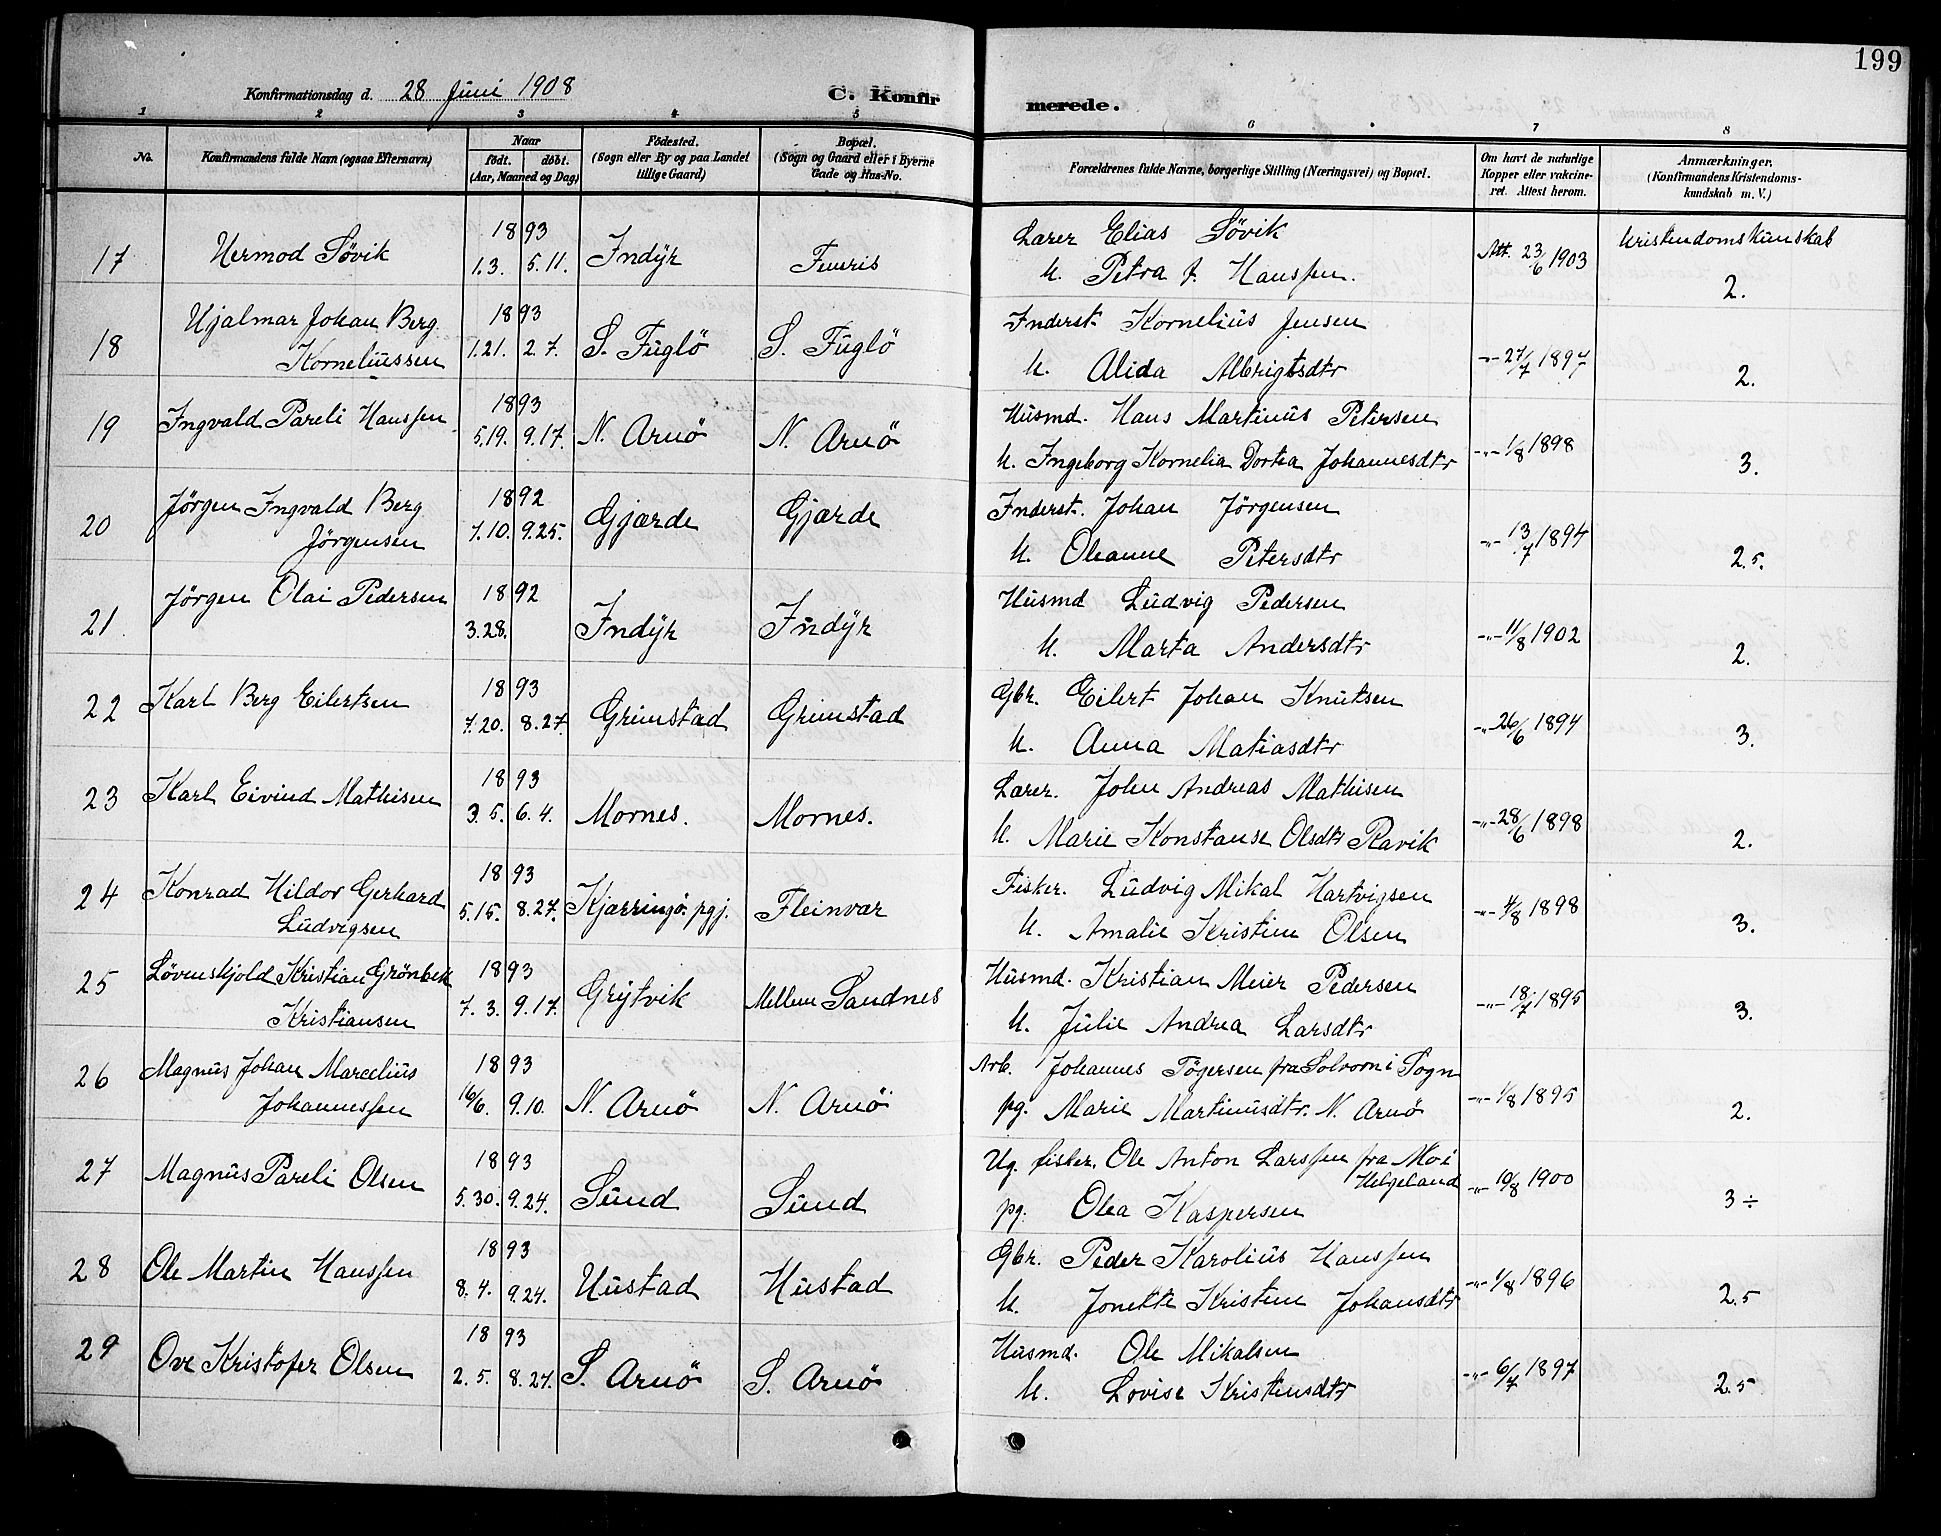 199
Konfirmationsdag d. 28 Juni 1908 C. Konfir merede.
1 2 3 4 5 6 7 8
No. Konfirmandens fulde Navn (ogsaa Efternavn) Naar födt. döbt. (Aar, Maaned og Dag) Födested. (Sogn eller By og paa Landet tillige Gaard) Bopæl. (Sogn og Gaard eller i Byerne Gade og Hus-No. Forældrenes fulde Navne, borgerlige Stilling (Næringsvei) og Bopæl. Om havt de naturlige Kopper eller vakcineret. Attest herom. Anmærkninger. (Konfirmandens Kristendomskundskab m. V.)
1893 Lærer Elias Sövik Kristendomskunskab
17 Hermod Sövik 1.3. 5.11. Indyr Att. 23/6 1903
H. Petra f. Hanssen. 2.
Hjalmar Johan Berg 1893 Inderst. Kornelius Jensen
18 Korneliussen 1.21. 2.7. S. Fuglö S. Fuglö H. Alida Albrigtsdtr -"- 27/7 1894 2.
1893 Husmd. Hans Martinus Petersen
19 Ingvald Pareli Hanssen 5.19. 9.17. N. Arnö N. Arnö H. Ingeborg Kornelia Dortea Johannesdtr -"- 1/8 1898 3.
Jörgen Ingvald Berg 1892 Inderst. Johan Jörgensen
20 Jörgensen 7.10. 9.25. Gjærde Gjærde H. Oleanne Petersdtr -"- 13/7 1894 2.5.
Jörgen Olai Pedersen 1892 Husmd Ludvig Pedersen
21. 3.28. Indyr Indyr H. Marta Andersdtr -"- 11/8 1902 2.
Karl Berg Eilertsen 1893 Gbr. Eilert Johan Knutsen
22 7.20. 8.27. Grimstad Grimstad H. Anna Matiasdtr -"- 26/6 1894 3.
Karl Eivind Mathisen 1893 Lærer. John Andreas Mathisen
23 3.5. 6.4. Mornes. Mornes. H. Marie Konstanse Olsdtr Ravik -"- 28/6 1898 2.
Konrad Hildor Gerhard 1893 Fisker. Ludvig Mikal Hartvigsen
24 Ludvigsen 5.15. 8.27. Kjærringö. pgj. Fleinvær H. Amalie Kristine Olsen -"- 4/8 1898 3.
Lövenskjold Kristian Grönbek 1893 Husmd. Kristian Meier Pedersen
25 Kristiansen 7.3. 9.17. Grytvik Mellem Sandnes H. Julie Andrea Larsdtr -"- 18/7 1895 3.
Magnus Johan Marcelius 1893 Arb. Johannes Tögersen fra Solvorn i Sogn
26 Johannessen 16/6. 9.10. N. Arnö N. Arnö pg. Marie Martinusdtr. N. Arnö -"- 1/8 1895 2.
1893 Ug. fisker. Ole Anton Larssen fra Mo i Helgeland
27 Magnus Pareli Olsen 5.30. 9.24. Sund Sund pg. Olea Kaspersen -"- 10/8 1900 3 ÷
1893 Gbr. Peder Karolius Hanssen
28 Ole Martin Hanssen 8.4. 9.24. Hustad Hustad H. Jonette Kristine Johansdtr -"- 1/8 1896 2.5
1893 Husmd. Ole Mikalsen
29 Ove Kristofer Olsen 2.5. 8.27. S. Arnö S. Arnö H. Lovise Kristensdtr -"- 6/7 1897 2.5